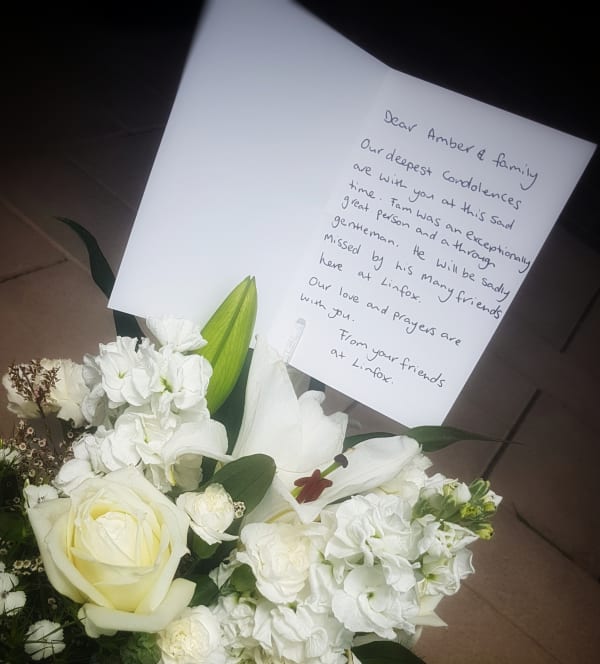 Dear Amber & family
Our deepest Condolences
are with you at this sad
time. Fam was an exceptionally
great person and a through
gentleman. He will be sadly
missed by his many friends
here at Linfox.
Our love and prayers are
with you.
From your friends
at Linfox.